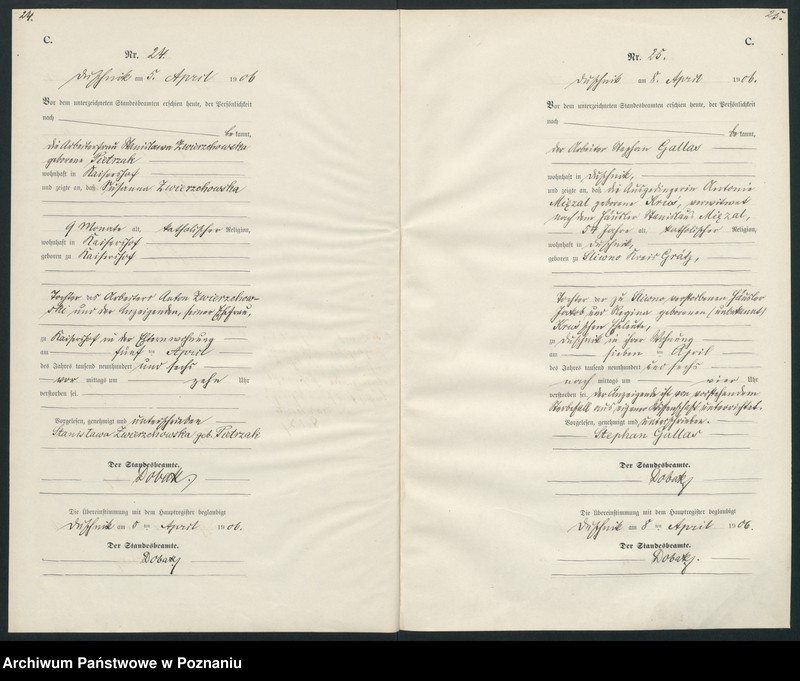 24.
C.
Nr. 24.
Duschnik am 5. April 1906
Vor dem unterzeichneten Standesbeamten erschien heute, der Persönlichkeit
nach
be kannt,
die Arbeiterfrau Stanislawa Zwierzchowska
geborene Pietrzak
wohnhaft in Kaisershof
und zeigte an, daß Susanna Zwierzchowska
9 Monate alt, katholischer Religion,
wohnhaft in Kaisershof
geboren zu Kaisershof
Tochter des Arbeiters Anton Zwierzchow-
ski und der Anzeigenden, seiner Ehefrau,
zu Kaisershof in der Elternwohnung
am fünf ten April
des Jahres tausend neunhundert und sechs
vor mittags um zehn Uhr
verstorben sei.
Vorgelesen, genehmigt und unterschrieben
Stanisława Zwierzchowska geb. Pietrzak
Der Standesbeamte.
Doback
Die Übereinstimmung mit dem Hauptregister beglaubigt
Duschnik am 5 ten April 1906.
Der Standesbeamte.
Doback
25.
C.
Nr. 25.
Duschnik am 8. April 1906.
Vor dem unterzeichneten Standesbeamten erschien heute, der Persönlichkeit
nach
be kannt,
der Arbeiter Stephan Gallas
wohnhaft in Duschnik,
und zeigte an, daß die Ausgedingerin Antonie
geborene verwitwet
nach dem Häusler Stanislaus
54 Jahre alt, katholischer Religion,
wohnhaft in Duschnik,
geboren zu Sliwno Kreis Grätz,
Tochter der zu Sliwno verstorbenen Häusler
Jakob und Regina geborenen (unbekannt)
schen Eheleute,
zu Duschnik in ihrer Wohnung
am sieben ten April
des Jahres tausend neunhundert und sechs
nach mittags um vier Uhr
verstorben sei, der Anzeigende ist von vorstehendem
Sterbefall aus eigener Wissenschaft unterrichtet.
Vorgelesen, genehmigt und unterschrieben.
Stephan Gallas
Der Standesbeamte.
Doback
Die Übereinstimmung mit dem Hauptregister beglaubigt
Duschnik am 8 ten April 1906.
Der Standesbeamte.
Doback.
Archiwum Państwowe w Poznaniu